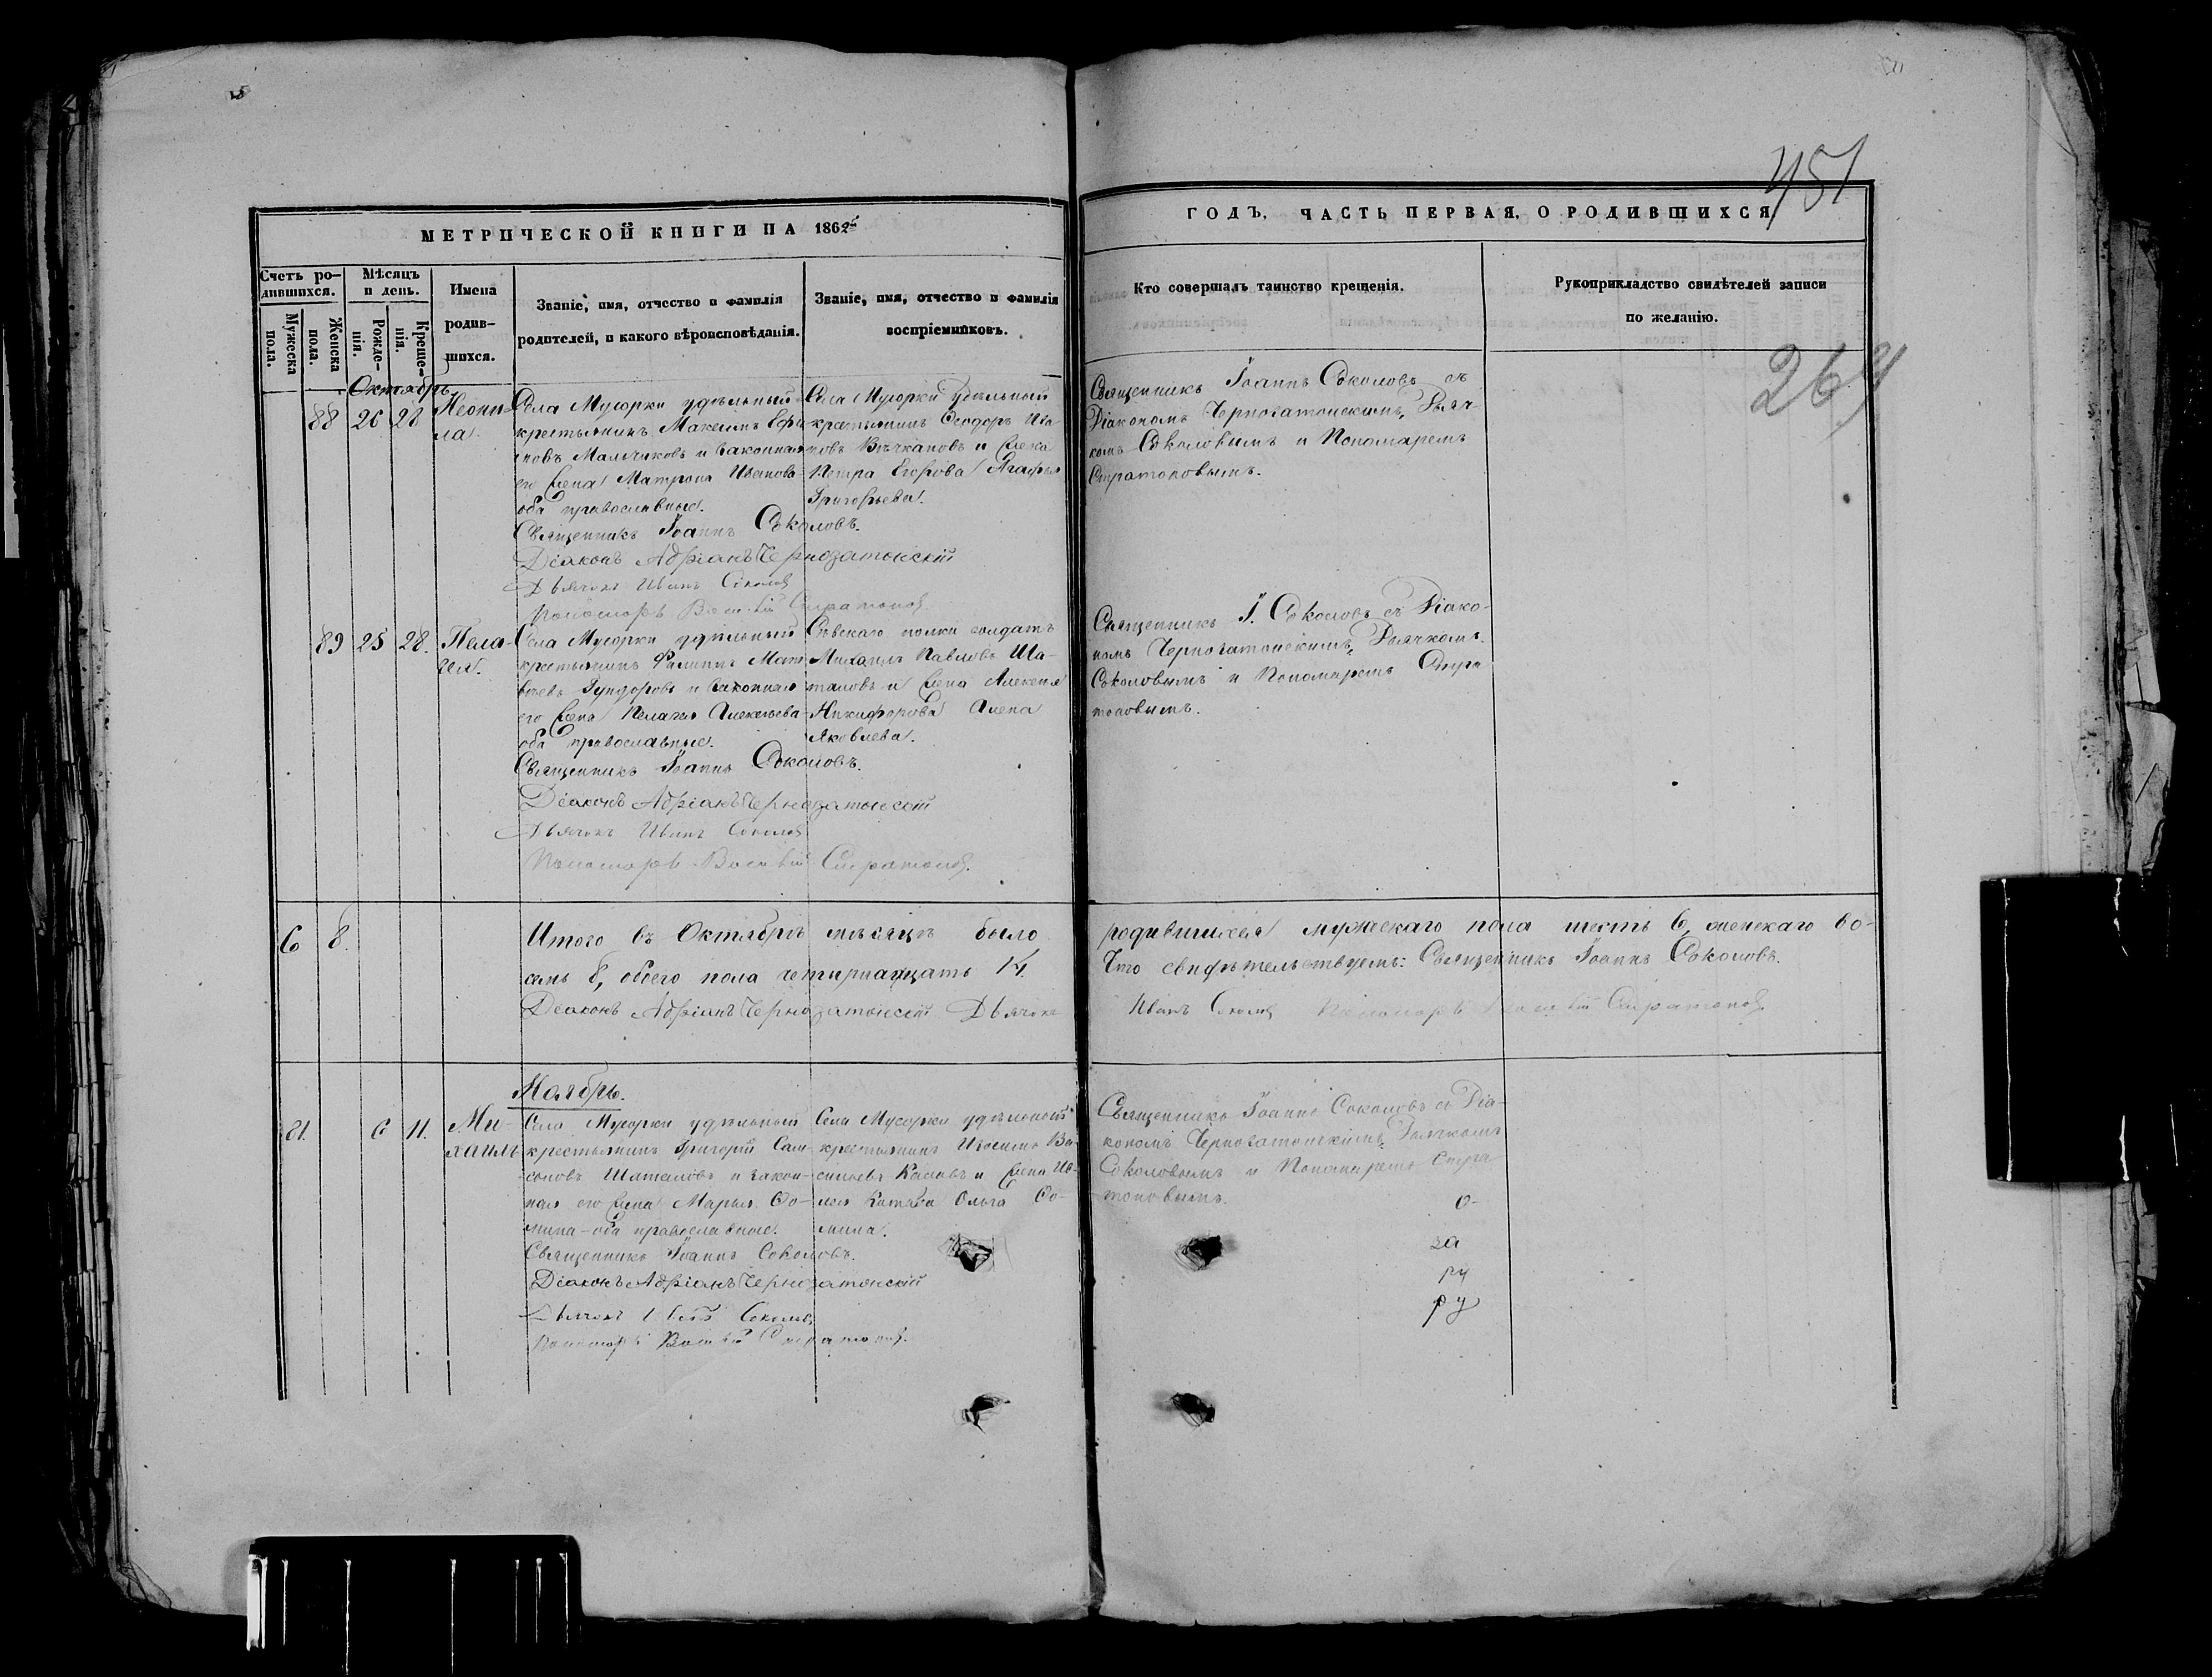 451
МЕТРИЧЕСКОЙ КНИГИ НА 1862
ГОДЪ, ЧАСТЬ ПЕРВАЯ, О РОДИВШИХСЯ
Счетъ ро-
дившихся.
Мужеска
пола.
Женска
пола.
Мѣсяцъ
и день.
Рожде-
нія.
Креще-
нія.
Имена
родив-
шихся.
Званіе, имя, отчество и фамилія
родителей, и какого вѣроисповѣданія.
Званіе, имя, отчество и фамилія
воспріемниковъ.
Кто совершалъ таинство крещенія.
Рукоприкладство свидѣтелей записи
по желанію.
264
Октябрь
88 26 28 Неони-
ла
Села Мусорки удѣльный
крестьянинъ Максимъ Ефи
мовъ Мальчиковъ и законная
его жена Матрона Иванова
оба православные.
Священникъ Іоаннъ Соколовъ.
Діаконъ Адріанъ Чернозатонскій
Дьячокъ Иванъ Соколов
Пономарь Василій Стратонов
Села Мусорки удѣльный
крестьянинъ Ѳеодоръ Ива-
новъ Вѣчкановъ и жена
Петра Егорова Агафья
Григорьева.
Священникъ Іоаннъ Соколовъ съ
Діакономъ Чернозатонскимъ, Дьяч-
комъ Соколовымъ и Пономаремъ
Стратоновымъ.
89 25 28. Пела-
гея.
Села Мусорки удѣльный
крестьянинъ Филиппъ Мат
вѣевъ Гундоровъ и законная
его жена Пелагея Алексѣева
оба православные.
Священникъ Іоаннъ Соколовъ.
Діаконъ Адріанъ Чернозатонскій
Дьячокъ Иванъ Соколов
Пономарь Василій Стратонов.
полка солдатъ
Михаилъ Павловъ Ша-
таловъ и жена Алексея
Никифорова Алена
Яковлева.
Священникъ І. Соколовъ съ Діако-
номъ Чернозатонскимъ, Дьячкомъ
Соколовымъ и Пономаремъ Стра
тоновымъ.
6 8. Итого въ Октябрѣ мѣсяцѣ было родившихся мужескаго пола шесть 6, женскаго во-
семь 8, обоего пола четырнадцать 14. Что свидѣтельствуемъ: Священникъ Іоаннъ Соколовъ.
Діаконъ Адріанъ Чернозатонскій Дьячокъ Иванъ Соколов Пономарь Василій Стратонов
Ноябрь.
81. 6 11. Ми-
хаилъ
Села Мусорки удѣльный
крестьянинъ Григорій Сам-
соновъ Шаталовъ и закон-
ная его жена Марья Ѳо-
мина - оба православные.
Священникъ Іоаннъ Соколовъ.
Діаконъ Адріанъ Чернозатонскій
Дьячокъ Соколов
Пономарь Василій Стратонов.
Села Мусорки удѣльный
крестьянинъ Ва-
сильевъ и жена Ив-
Ольга Ѳо-
мина.
Священникъ Іоаннъ Соколовъ съ Діа-
кономъ Чернозатонскимъ, Дьячкомъ
Соколовымъ и Пономаремъ Стра-
тоновымъ.
о-
за
ру
ру